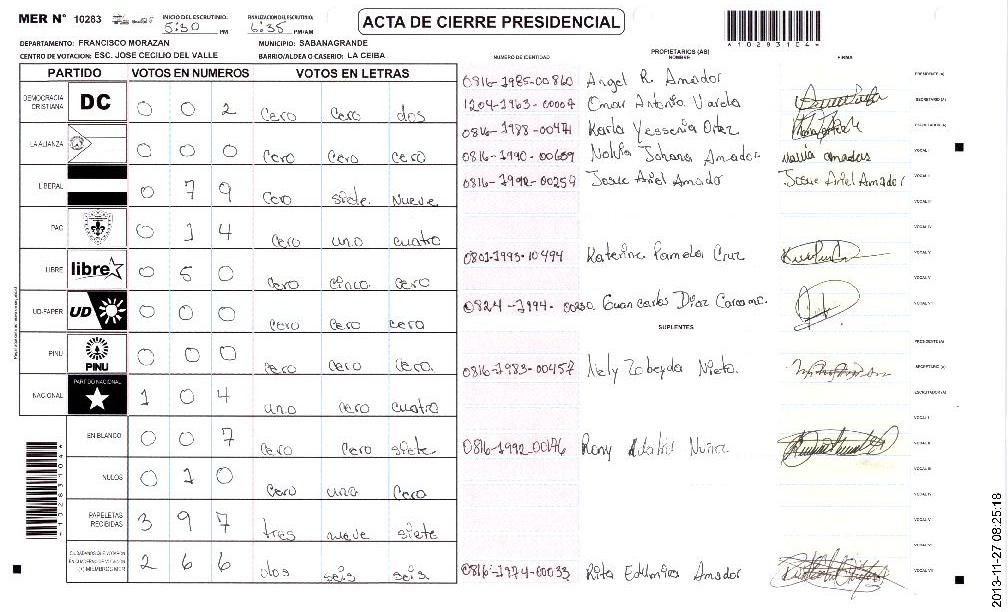 MER N° 10283 INICIO DEL ESCRUTINIO: 5:30 PM FINALIZACION DEL ESCRUTINIO: 6:35 PM/AM ACTA DE CIERRE PRESIDENCIAL
DEPARTAMENTO: FRANCISCO MORAZAN MUNICIPIO: SABANAGRANDE *10283104*
CENTRO DE VOTACION: ESC. JOSE CECILIO DEL VALLE BARRIO/ALDEA O CASERIO: LA CEIBA
PARTIDO VOTOS EN NUMEROS VOTOS EN LETRAS
DEMOCRACIA CRISTIANA DC 0 0 2 cero cero dos
LA ALIANZA 0 0 0 cero cero cero
LIBERAL 0 7 9 cero siete nueve
PAC 0 1 4 cero uno cuatro
LIBRE libre 0 5 0 cero cinco cero
UD-FAPER UD 0 0 0 cero cero cero
PINU PINU 0 0 0 cero cero cero
NACIONAL PARTIDO NACIONAL 1 0 4 uno cero cuatro
EN BLANCO 0 0 7 cero cero siete
NULOS 0 1 0 cero uno cero
PAPELETAS RECIBIDAS 3 9 7 tres nueve siete
CIUDADANOS QUE VOTARON EN CUADERNO DE VOTACION (+) MIEMBROS MER 2 6 6 dos seis seis
*10283104*
NUMERO DE IDENTIDAD PROPIETARIOS (AS) NOMBRE FIRMA
0816-1985-00860 Angel R. Amador PRESIDENTE (A)
1204-1963-00004 Omar Antonio Varela SECRETARIO (A)
0816-1988-00474 Karla Yessenia Ortez ESCRUTADOR (A)
0816-1990-00609 Nohia Johana Amador VOCAL I
0816-1992-00259 Josue Ariel Amador Josue Ariel Amador VOCAL II
VOCAL III
VOCAL IV
0801-1993-10494 Katerine Pamela Cruz VOCAL V
0824-1994-00230 Guan carlos Diaz
SUPLENTES
PRESIDENTE (A)
0816-1983-00457 Nely Zobeyda Nieto. SECRETARIO (A)
ESCRUTADOR (A)
VOCAL I
0816-1992-00176 Rony Adalid Nuñez VOCAL II
VOCAL III
VOCAL IV
VOCAL V
0816-1974-00033 Rita Edelmira Amador VOCAL VII
2013-11-27 08:25:18